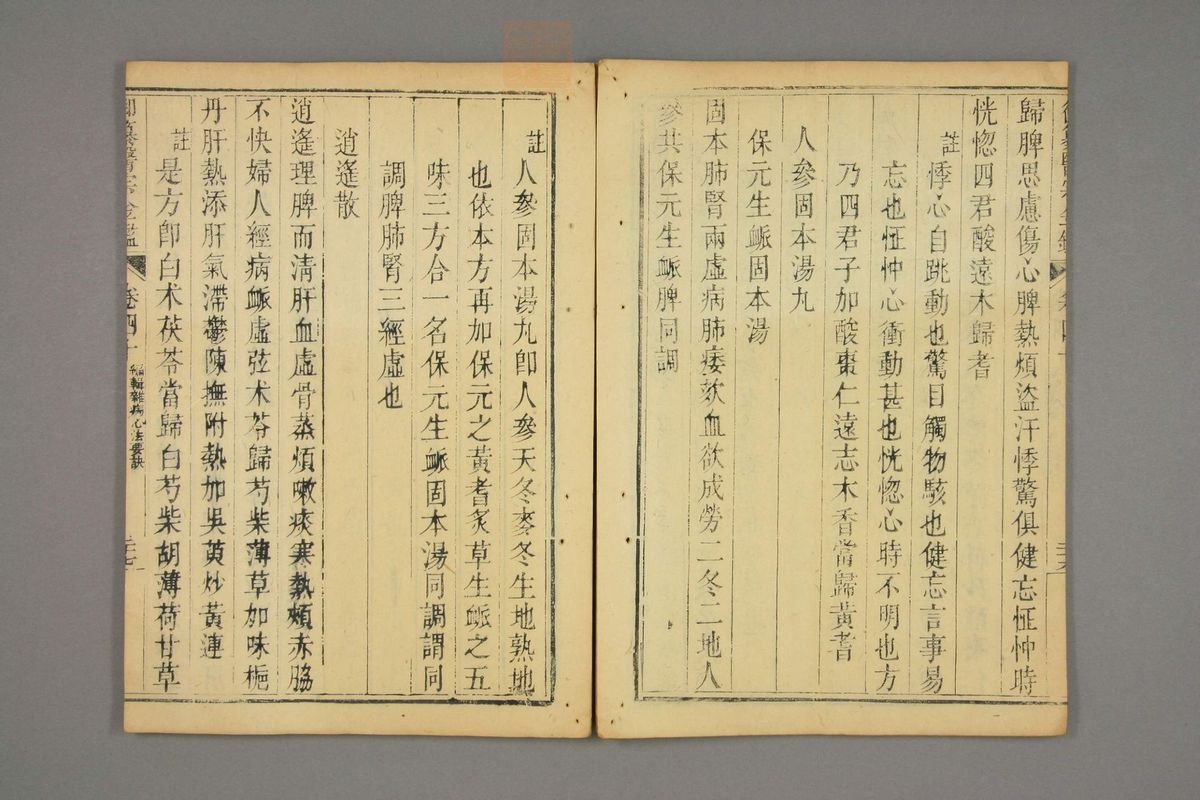 歸脾思慮傷心脾熱煩盜汗悸驚俱健忘怔忡時
恍惚四君酸遠木歸耆
註悸心自跳動也驚目觸物駭也健忘言事易
忘也怔忡心衝動甚也恍惚心時不明也方
乃四君子加酸棗仁遠志木香當歸黃耆
人參固本湯丸
保元生脈固本湯
固本肺腎兩虛病肺痿欬血欲成勞二冬二地人
參共保元生脈脾同調
註人參固本湯丸卽人參天冬麥冬生地熟地
也依本方再加保元之黃耆炙草生脈之五
味三方合一名保元生脈固本湯同調謂同
調脾肺腎三經虛也
逍遙散
逍遙理脾而清肝血虛骨蒸煩嗽痰寒熱頰赤脇
不快婦人經病脈虛弦朮苓歸芍柴薄草加味梔
丹肝熱添肝氣滯鬱陳撫附熱加吳萸炒黃連
註是方卽白朮茯苓當歸白芍柴胡薄荷甘草
御纂醫宗金鑑 卷四十 編輯雜病心法要訣